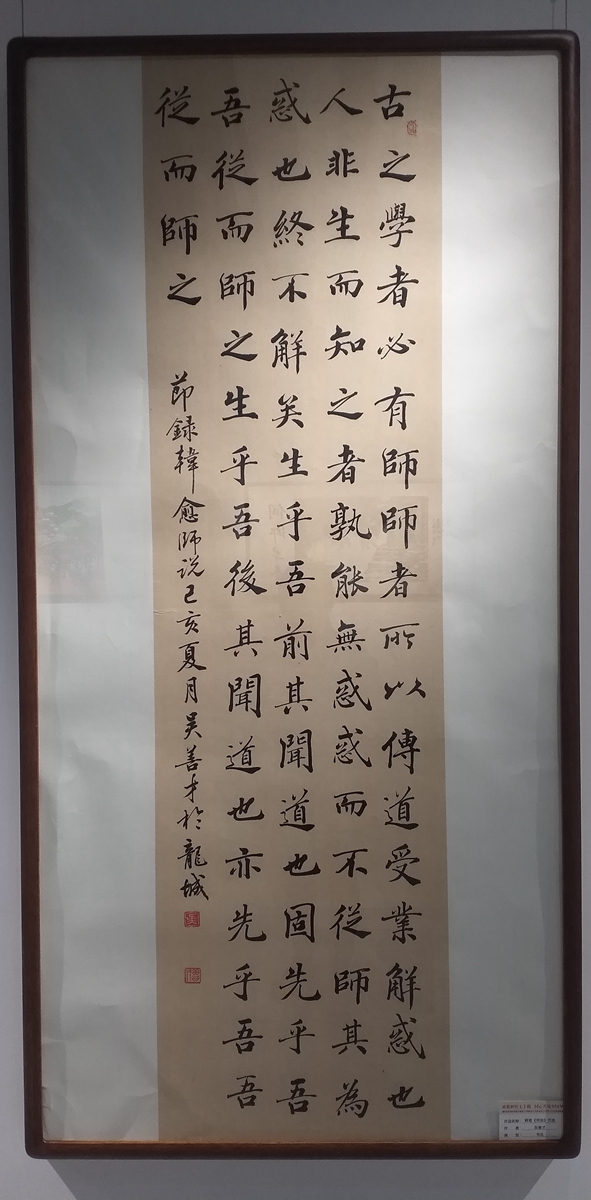 古之學者必有師師者所以傳道受業解惑也
人非生而知之者孰能無惑惑而不從師其為
惑也終不解矣生乎吾前其聞道也固先乎吾
吾從而師之生乎吾後其聞道也亦先乎吾吾
從而師之
節録韓愈師説己亥夏月吴善才於龍城